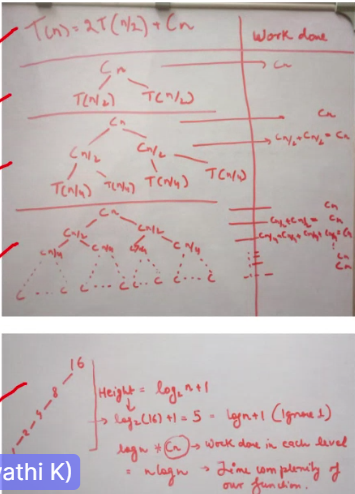 T(n) = 2T(n/2) + Cn
Work done
Cn
Cn
T(n/2) T(n/2)
Cn
Cn
Cn/2 Cn/2
Cn/2 + Cn/2 = Cn
T(n/4) T(n/4) T(n/4) T(n/4)
Cn
Cn
Cn/2 Cn/2
Cn/2 + Cn/2 = Cn
Cn/4 Cn/4 Cn/4 Cn/4
Cn/4 + Cn/4 + Cn/4 + Cn/4 = Cn
Cn
Cn
C . . . C C . . . C C . . . C C . . . C
16
8
Height = log₂n + 1
→ log₂(16) + 1 = 5 = logn + 1 (Ignore 1)
2
logn * Cn → work done in each level
= nlogn → Time complexity of
our function.
yathi K)